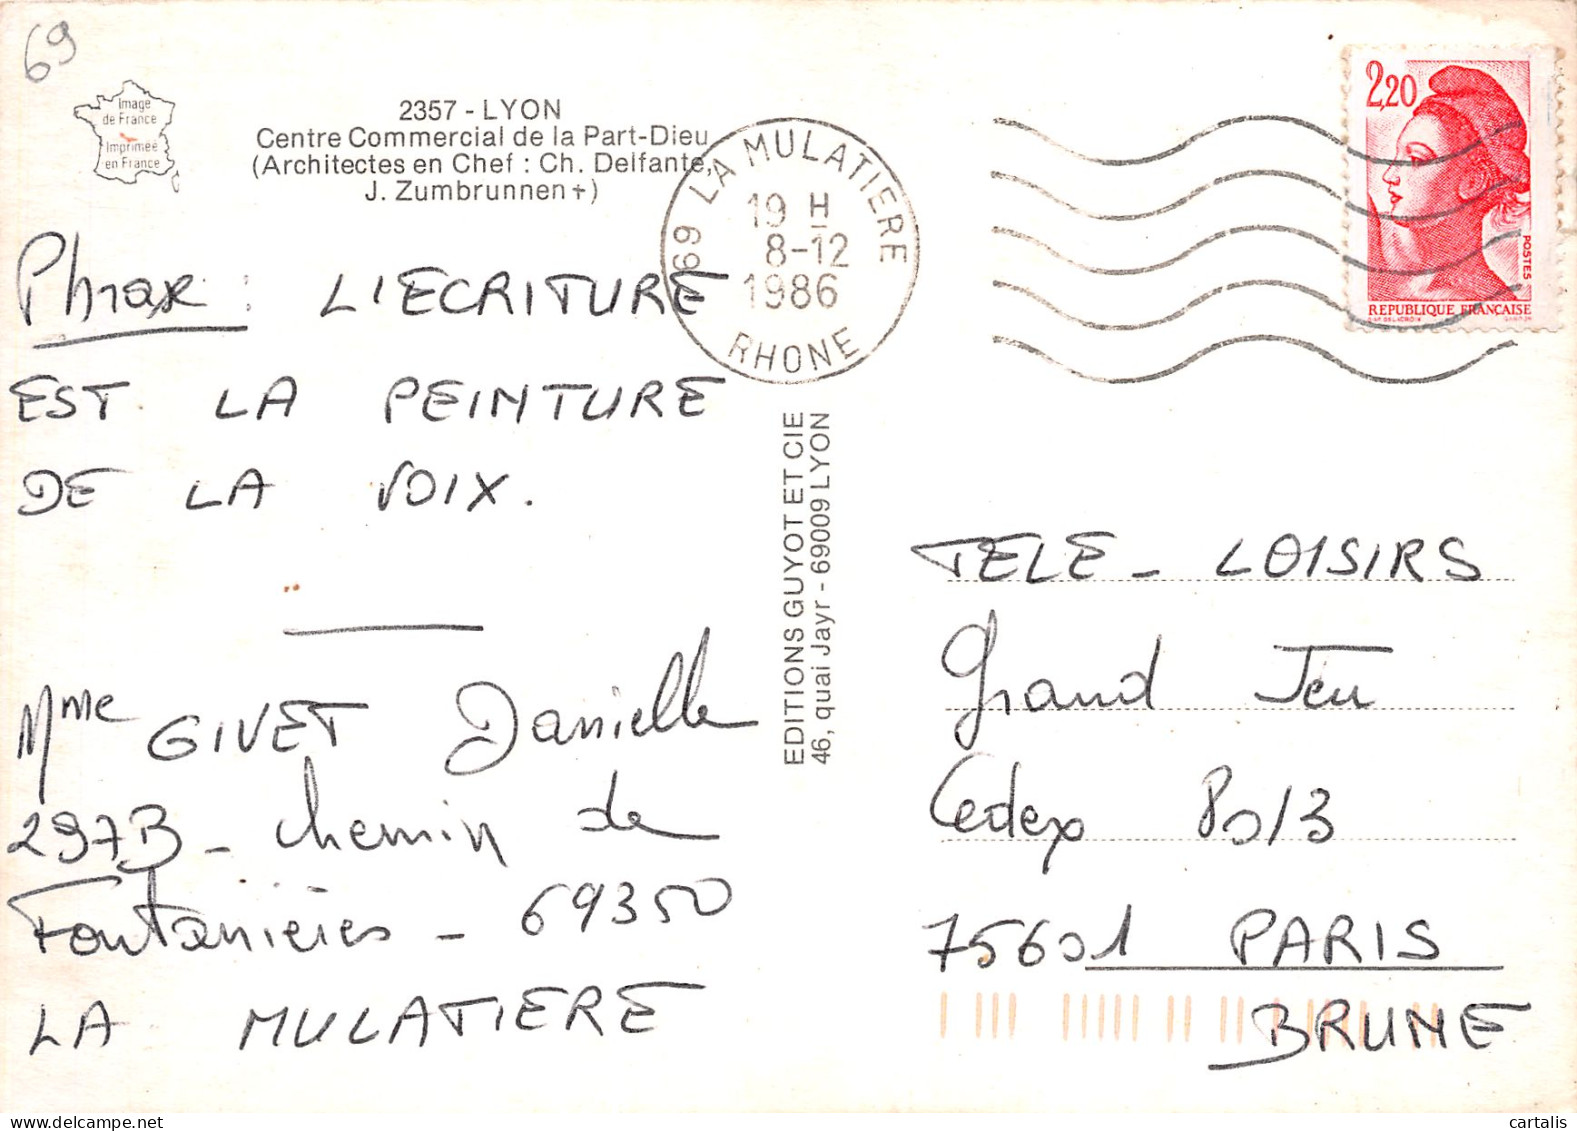 69
Image
de France
Imprimée
en France
2357 - LYON
Centre Commercial de la Part-Dieu
(Architectes en Chef : Ch. Delfante,
J. Zumbrunnen +)
69 LA MULATIERE
19 H
8-12
1986
RHONE
2,20
POSTES
REPUBLIQUE FRANÇAISE
Phrase : L'ECRITURE
EST LA PEINTURE
DE LA VOIX.
Mme GIVET Danielle
297B - chemin de
Fontanières - 69350
LA MULATIERE
EDITIONS GUYOT ET CIE
46, quai Jayr - 69009 LYON
TELE - LOISIRS
Grand Jeu
Cedex 8013
75601 PARIS
BRUNE
cartalis